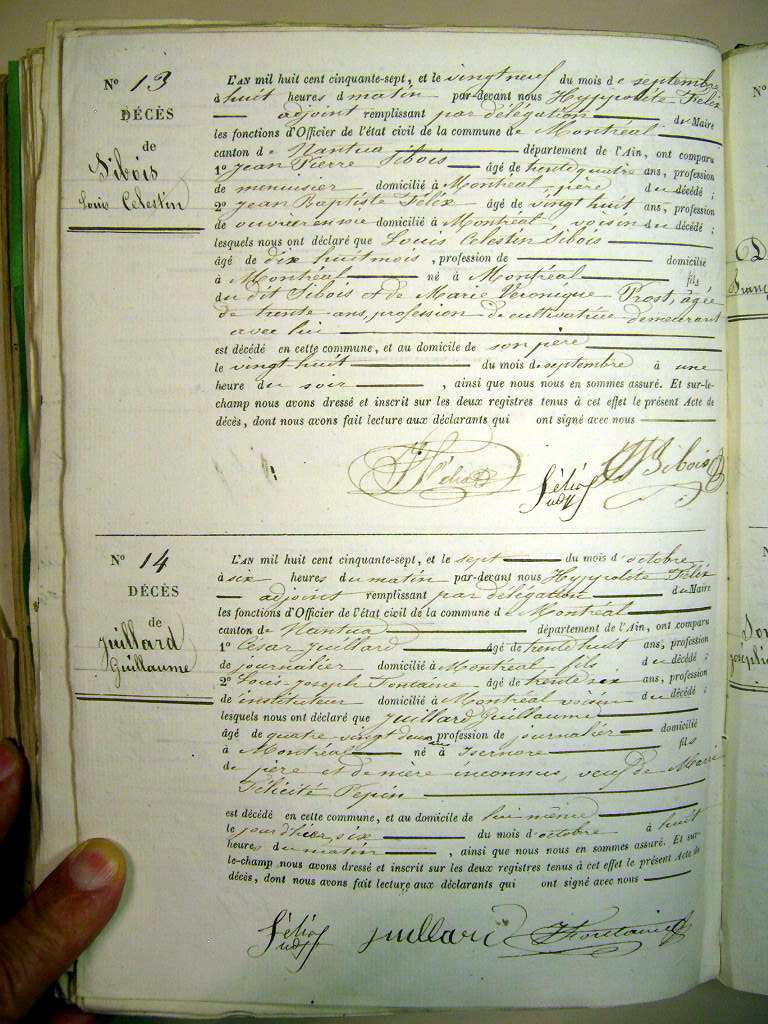 N° 13
DÉCÈS
de
Sibois
Louis Celestin
L'AN mil huit cent cinquante-sept, et le vingt neuf du mois de septembre
à huit heures d matin par-devant nous Hyppolite Felix
adjoint remplissant par délégation du Maire
les fonctions d'Officier de l'état civil de la commune de Montréal
canton de Nantua département de l'Ain, ont comparu
1° Jean Pierre Sibois âgé de trente quatre ans, profession
de menuisier domicilié à Montréal, père du décédé ;
2° Jean Baptiste Félix âgé de vingt huit ans, profession
de domicilié à Montréal, voisin du décédé ;
lesquels nous ont déclaré que Louis Celestin Sibois
âgé de dix huit mois, profession de domicilié
à Montréal né à Montréal fils
du dit Sibois et de Marie Veronique Prost, âgée
de trente ans, profession de cultivatrice demeurant
avec lui
est décédé en cette commune, et au domicile de son père
le vingt huit du mois de septembre à une
heure du soir , ainsi que nous nous en sommes assuré. Et sur-le-
champ nous avons dressé et inscrit sur les deux registres tenus à cet effet le présent Acte de
décès, dont nous avons fait lecture aux déclarants qui ont signé avec nous
Félix
Félix
adj
Sibois
N° 14
DÉCÈS
de
Juillard
Guillaume
L'AN mil huit cent cinquante-sept, et le sept du mois d'octobre
à six heures du matin par-devant nous Hyppolite Félix
adjoint remplissant par délégation du Maire
les fonctions d'Officier de l'état civil de la commune de Montréal
canton de Nantua département de l'Ain, ont comparu
1° César Juillard âgé de trente huit ans, profession
de journalier domicilié à Montréal fils du décédé ;
2° Louis Joseph Fontaine âgé de trente six ans, profession
de instituteur domicilié à Montréal voisin du décédé ;
lesquels nous ont déclaré que Juillard Guillaume
âgé de quatre vingt deux ans profession de journalier domicilié
à Montréal né à Isernore fils
de père et de mère inconnus, veuf de Marie
Félicité Pepin
est décédé en cette commune, et au domicile de lui même
le jour d'hier six du mois d'octobre à huit
heures du matin , ainsi que nous nous en sommes assuré. Et sur-
le-champ nous avons dressé et inscrit sur les deux registres tenus à cet effet le présent Acte de
décès, dont nous avons fait lecture aux déclarants qui ont signé avec nous
Félix
adj
Juillard
Fontaine